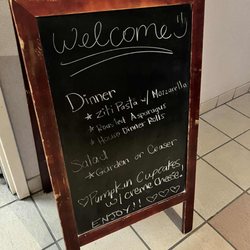 Welcome
Dinner
★ Ziti Pasta w/ Mozzarella
★ Roasted Asparagus
★ House Dinner Rolls
Salad
★ Garden or Ceaser
♡Pumpkin Cupcakes
w/ creme Cheese!
ENJOY!! ♡♡♡